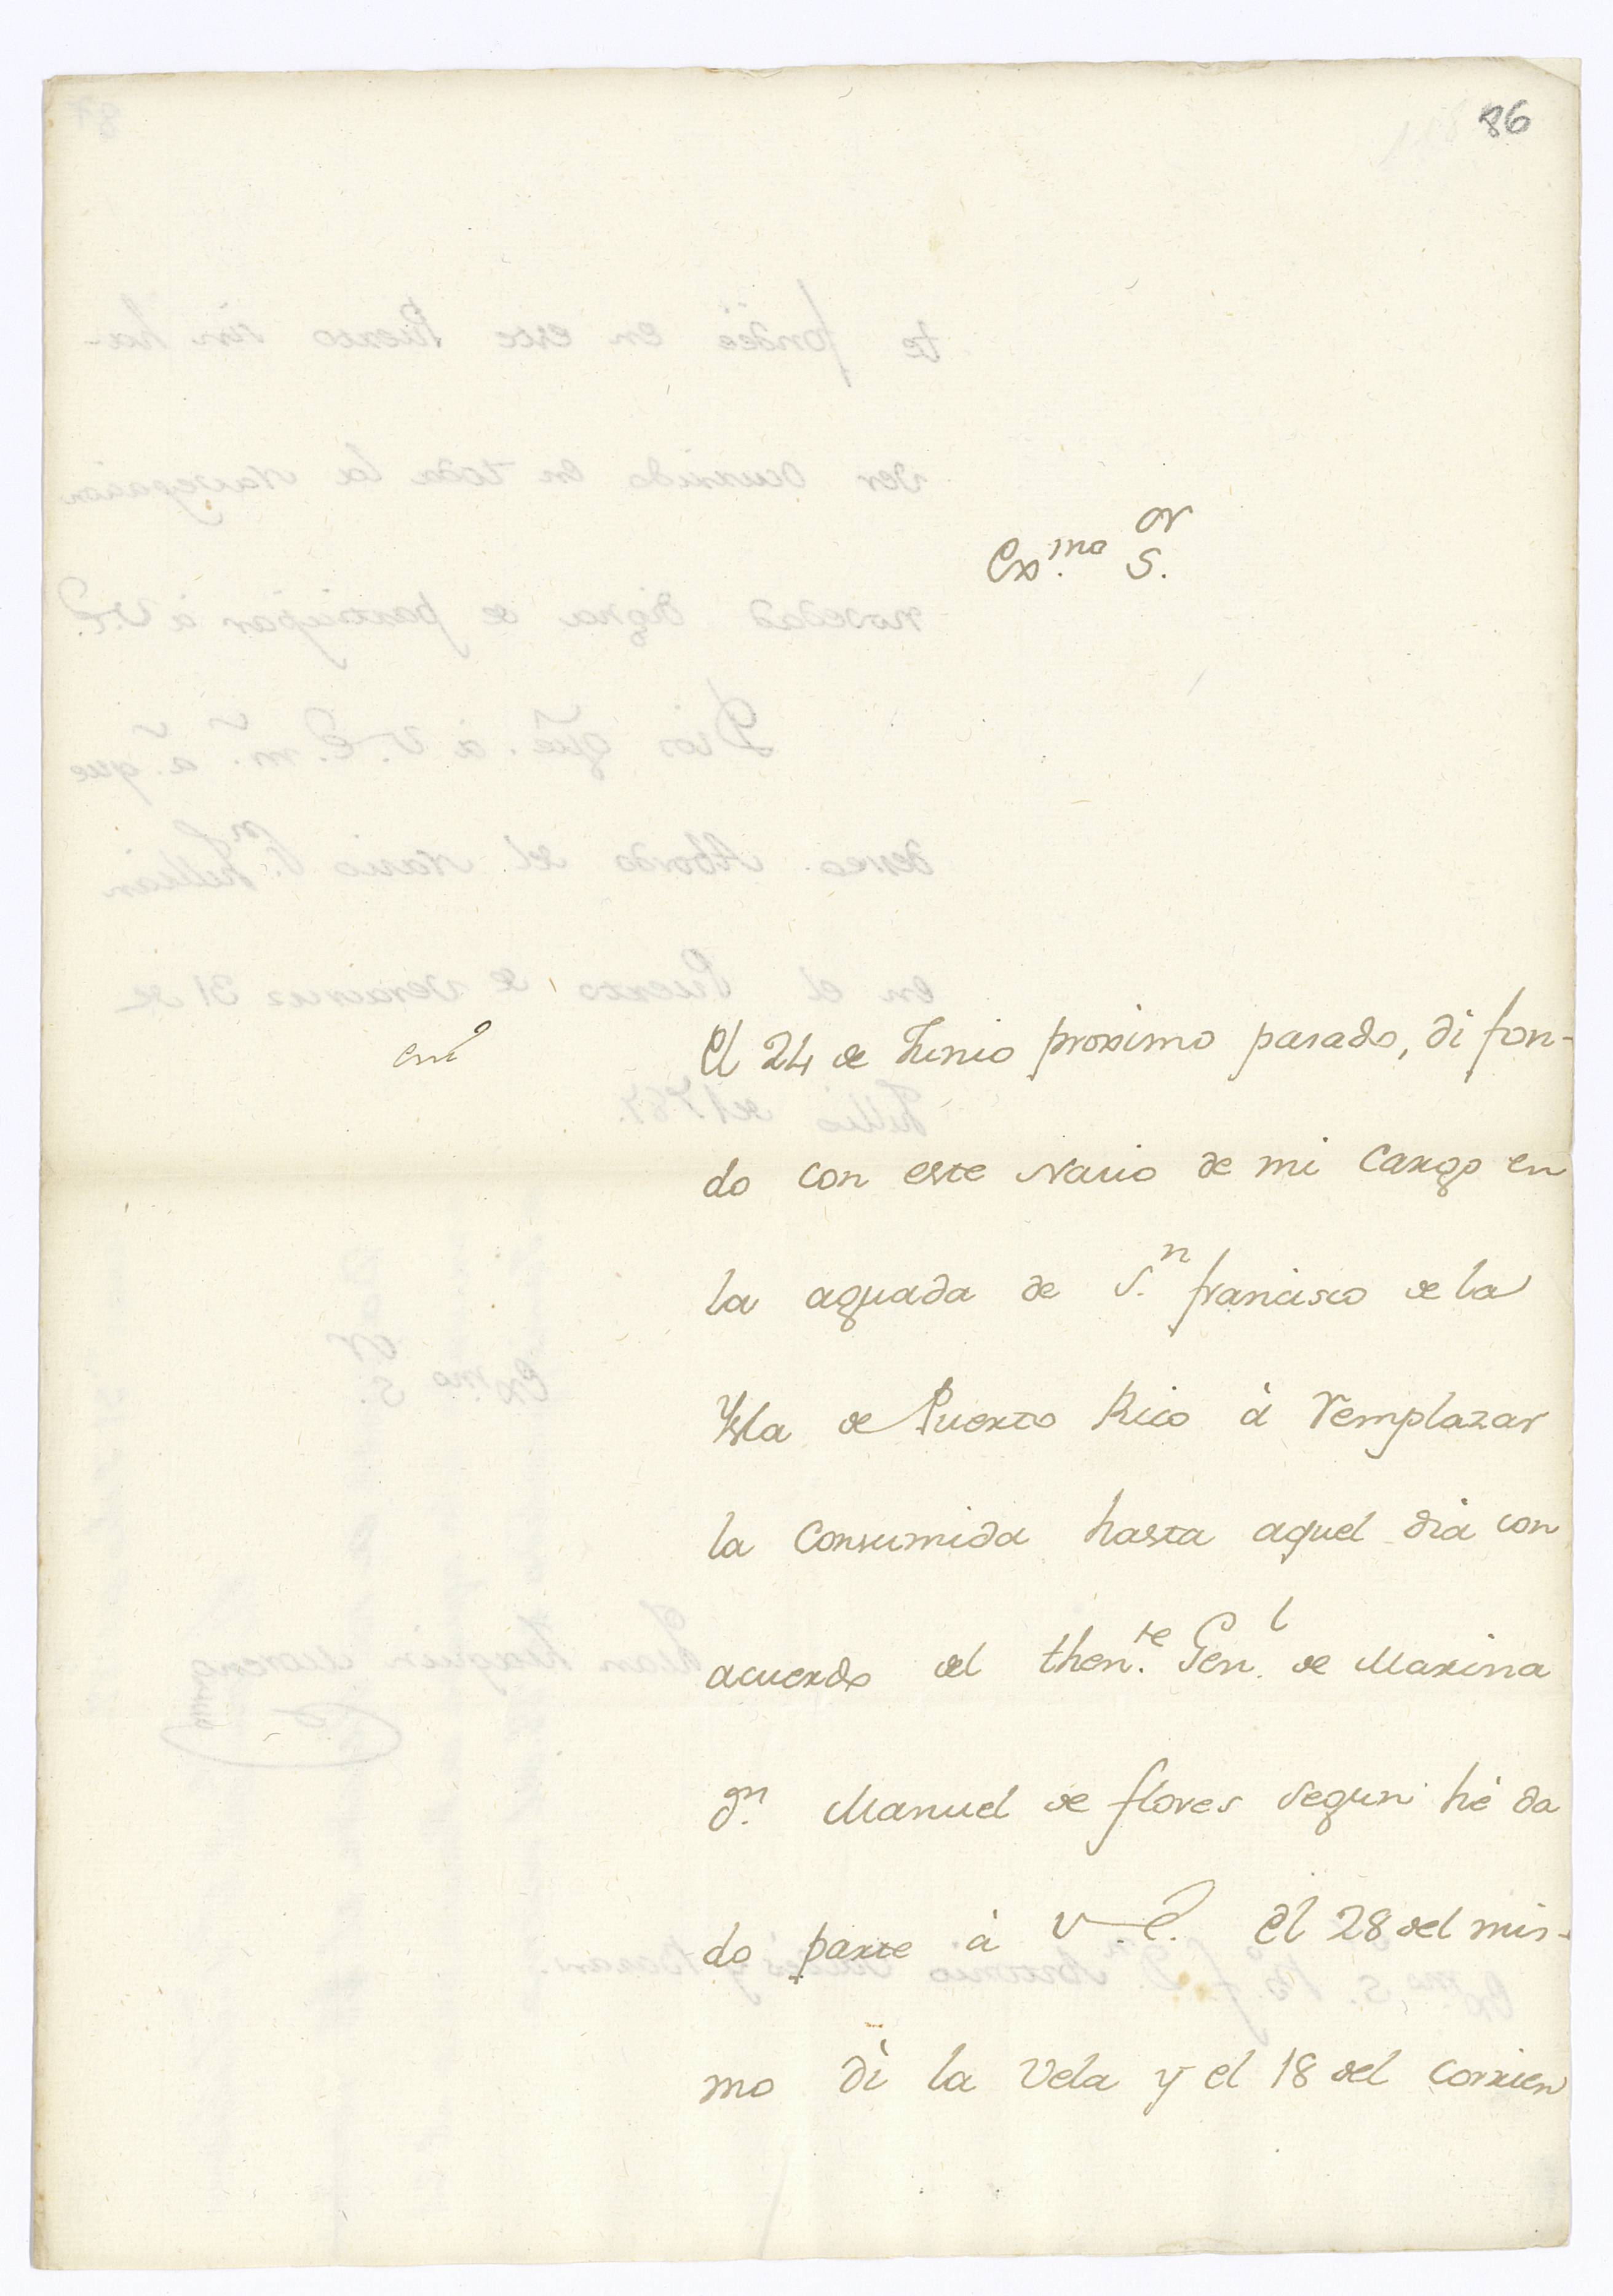 86
Ex.mo S.or
El 24 de Junio proximo pasado, di fon-
do con este Navio de mi cargo en
la aguada de S.n francisco de la
Ysla de Puerto Rico à remplazar
la Consumida hasta aquel dia con
acuerdo del then.te Gen.l de Marina
D.n Manuel de flores segun hè da
do parte à V.E. El 28 del mis-
mo di la Vela y el 18 del corrien